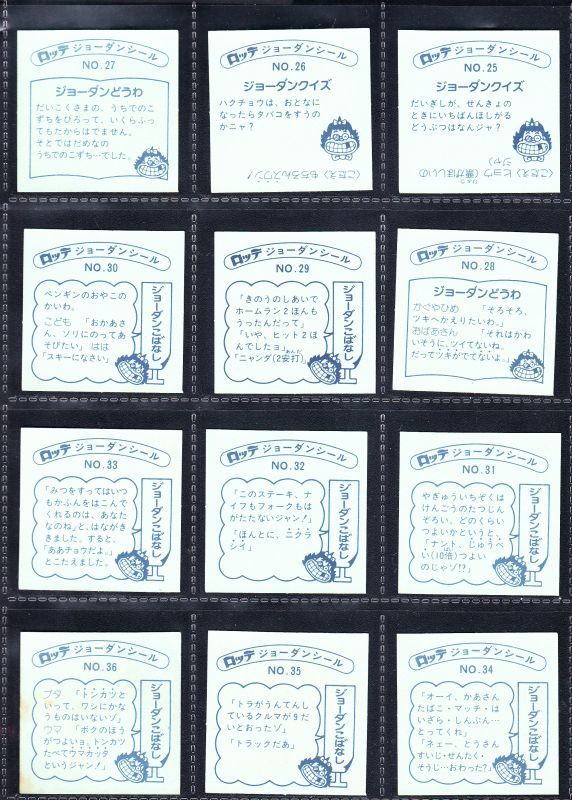 ロッテ ジョーダンシール
NO.27
ジョーダンどうわ
だいこくさまの、うちでのこ
ずちをひろって、いくらふっ
てもたからはでません。
そとではだめなの
うちでのこずち…でした。
ロッテ ジョーダンシール
NO.26
ジョーダンクイズ
ハクチョウは、おとなに
なったらタバコをすうの
かニャ？
〈こたえ〉もちろんスワン！
ロッテ ジョーダンシール
NO.25
ジョーダンクイズ
だいぎしが、せんきょの
ときにいちばんほしがる
どうぶつはなんジャ？
〈こたえ〉ヒョウ(票がほしいの
ジャ)
ロッテ ジョーダンシール
NO.30
ジョーダンこばなし
ペンギンのおやこの
かいわ。
こども 「おかあさ
ん、ソリにのってあ
そびたい」 はは
「スキーになさい」
ロッテ ジョーダンシール
NO.29
ジョーダンこばなし
「きのうのしあいで
ホームラン2ほんも
うったんだって」
「いや、ヒット2ほ
んでしたョ」
「ニャンダ(2安打)」
ロッテ ジョーダンシール
NO.28
ジョーダンどうわ
かぐやひめ 「そろそろ、
ツキへかえりたいわ。」
おばあさん 「それはかわ
いそうに、ツイてないね。
だってツキがでてないよ。」
ロッテ ジョーダンシール
NO.33
ジョーダンこばなし
「みつをすってはいつ
もかふんをはこんで
くれるのは、あなた
なのね」と、はながき
きました。すると、
「ああチョウだよ。」
とこたえました。
ロッテ ジョーダンシール
NO.32
ジョーダンこばなし
「このステーキ、ナ
イフもフォークもは
がたたないジャン！」
「ほんとに、ニクラ
シイ」
ロッテ ジョーダンシール
NO.31
ジョーダンこばなし
やぎゅういちぞくは
けんごうのたつじん
ぞろい、どのくらい
つよいかというと、
「ナント、じゅうべ
い(10倍)つよい
のじゃゾ!?」
ロッテ ジョーダンシール
NO.36
ジョーダンこばなし
ブタ 「トンカツと
いって、ワシにかな
うものはいないゾ」
ウマ 「ボクのほう
がつよいョ。トンカツ
たべてウマカッタ
というジャン！」
ロッテ ジョーダンシール
NO.35
ジョーダンこばなし
「トラがうんてんし
ているクルマが9だ
いとおったゾ」
「トラックだぁ」
ロッテ ジョーダンシール
NO.34
ジョーダンこばなし
「オーイ、かあさん
たばこ・マッチ・は
いざら・しんぶん…
とってくれ」
「ネェー、とうさん
すいじ・せんたく・
そうじ…おわった？」